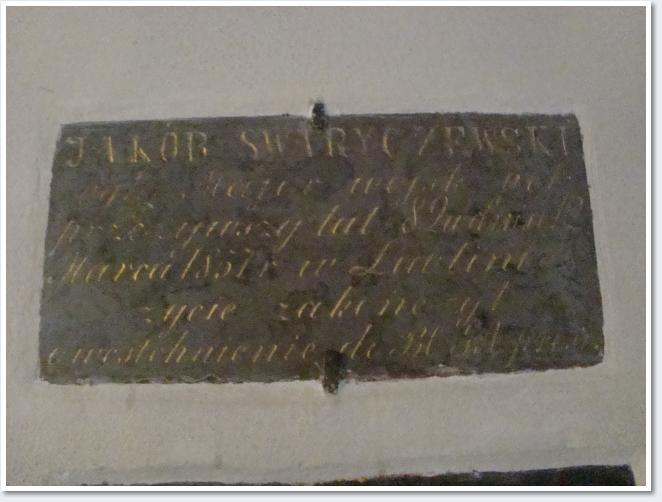 JAKÓB SWIRYCZEWSKI
były Major wojsk pol
przeżywszy lat 8
Marca 1857 r w Lublinie
życie zakończył
o westchnienie do